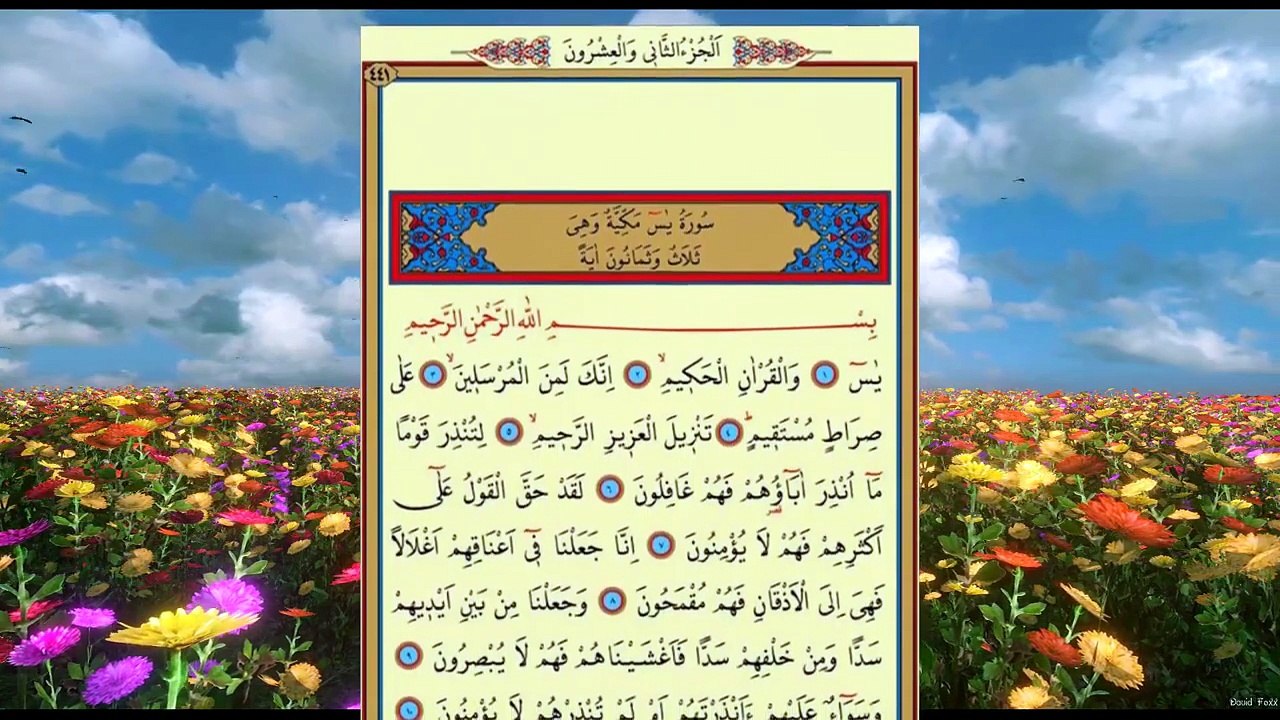 اَلْجُزْءُ الثَّانِى وَالْعِشْرُونَ
٤٤١
سُورَةُ يٰسٓ مَكِّيَّةٌ وَهِىَ
ثَلَاثٌ وَثَمَانُونَ اٰيَةً
بِسْمِ اللّٰهِ الرَّحْمٰنِ الرَّحٖيمِ
يٰسٓ ١ وَالْقُرْاٰنِ الْحَكٖيمِۙ ٢ اِنَّكَ لَمِنَ الْمُرْسَلٖينَۙ ٣ عَلٰى
صِرَاطٍ مُسْتَقٖيمٍؕ ٤ تَنْزٖيلَ الْعَزٖيزِ الرَّحٖيمِۙ ٥ لِتُنْذِرَ قَوْمًا
مَٓا اُنْذِرَ اٰبَٓاؤُ۬هُمْ فَهُمْ غَافِلُونَ ٦ لَقَدْ حَقَّ الْقَوْلُ عَلٰٓى
اَكْثَرِهِمْ فَهُمْ لَا يُؤْمِنُونَ ٧ اِنَّا جَعَلْنَا فٖٓى اَعْنَاقِهِمْ اَغْلَالًا
فَهِىَ اِلَى الْاَذْقَانِ فَهُمْ مُقْمَحُونَ ٨ وَجَعَلْنَا مِنْ بَيْنِ اَيْدٖيهِمْ
سَدًّا وَمِنْ خَلْفِهِمْ سَدًّا فَاَغْشَيْنَاهُمْ فَهُمْ لَا يُبْصِرُونَ ٩
وَسَوَٓاءٌ عَلَيْهِمْ ءَاَنْذَرْتَهُمْ اَمْ لَمْ تُنْذِرْهُمْ لَا يُؤْمِنُونَ ١٠
David Foxx